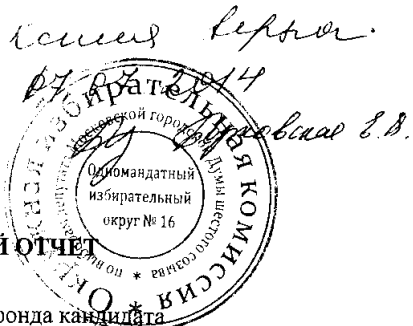 копия верна.
07.07.2014
Окружная избирательная комиссия
по выборам депутата Московской городской Думы шестого созыва
Одномандатный
избирательный
округ № 16
Й ОТЧЕТ
фонда кандидата